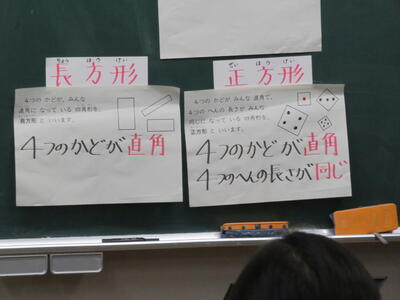 ちょう ほう けい
長方形
4つの かどが、みんな
直角に なって いる 四角形を、
長方形と いいます。
4つのかどが直角
せい ほう けい
正方形
4つの かどが みんな 直角で、
4つの へんの 長さが みんな
同じに なって いる 四角形を、
正方形と いいます。
4つのかどが直角
4つのへんの長さが同じ